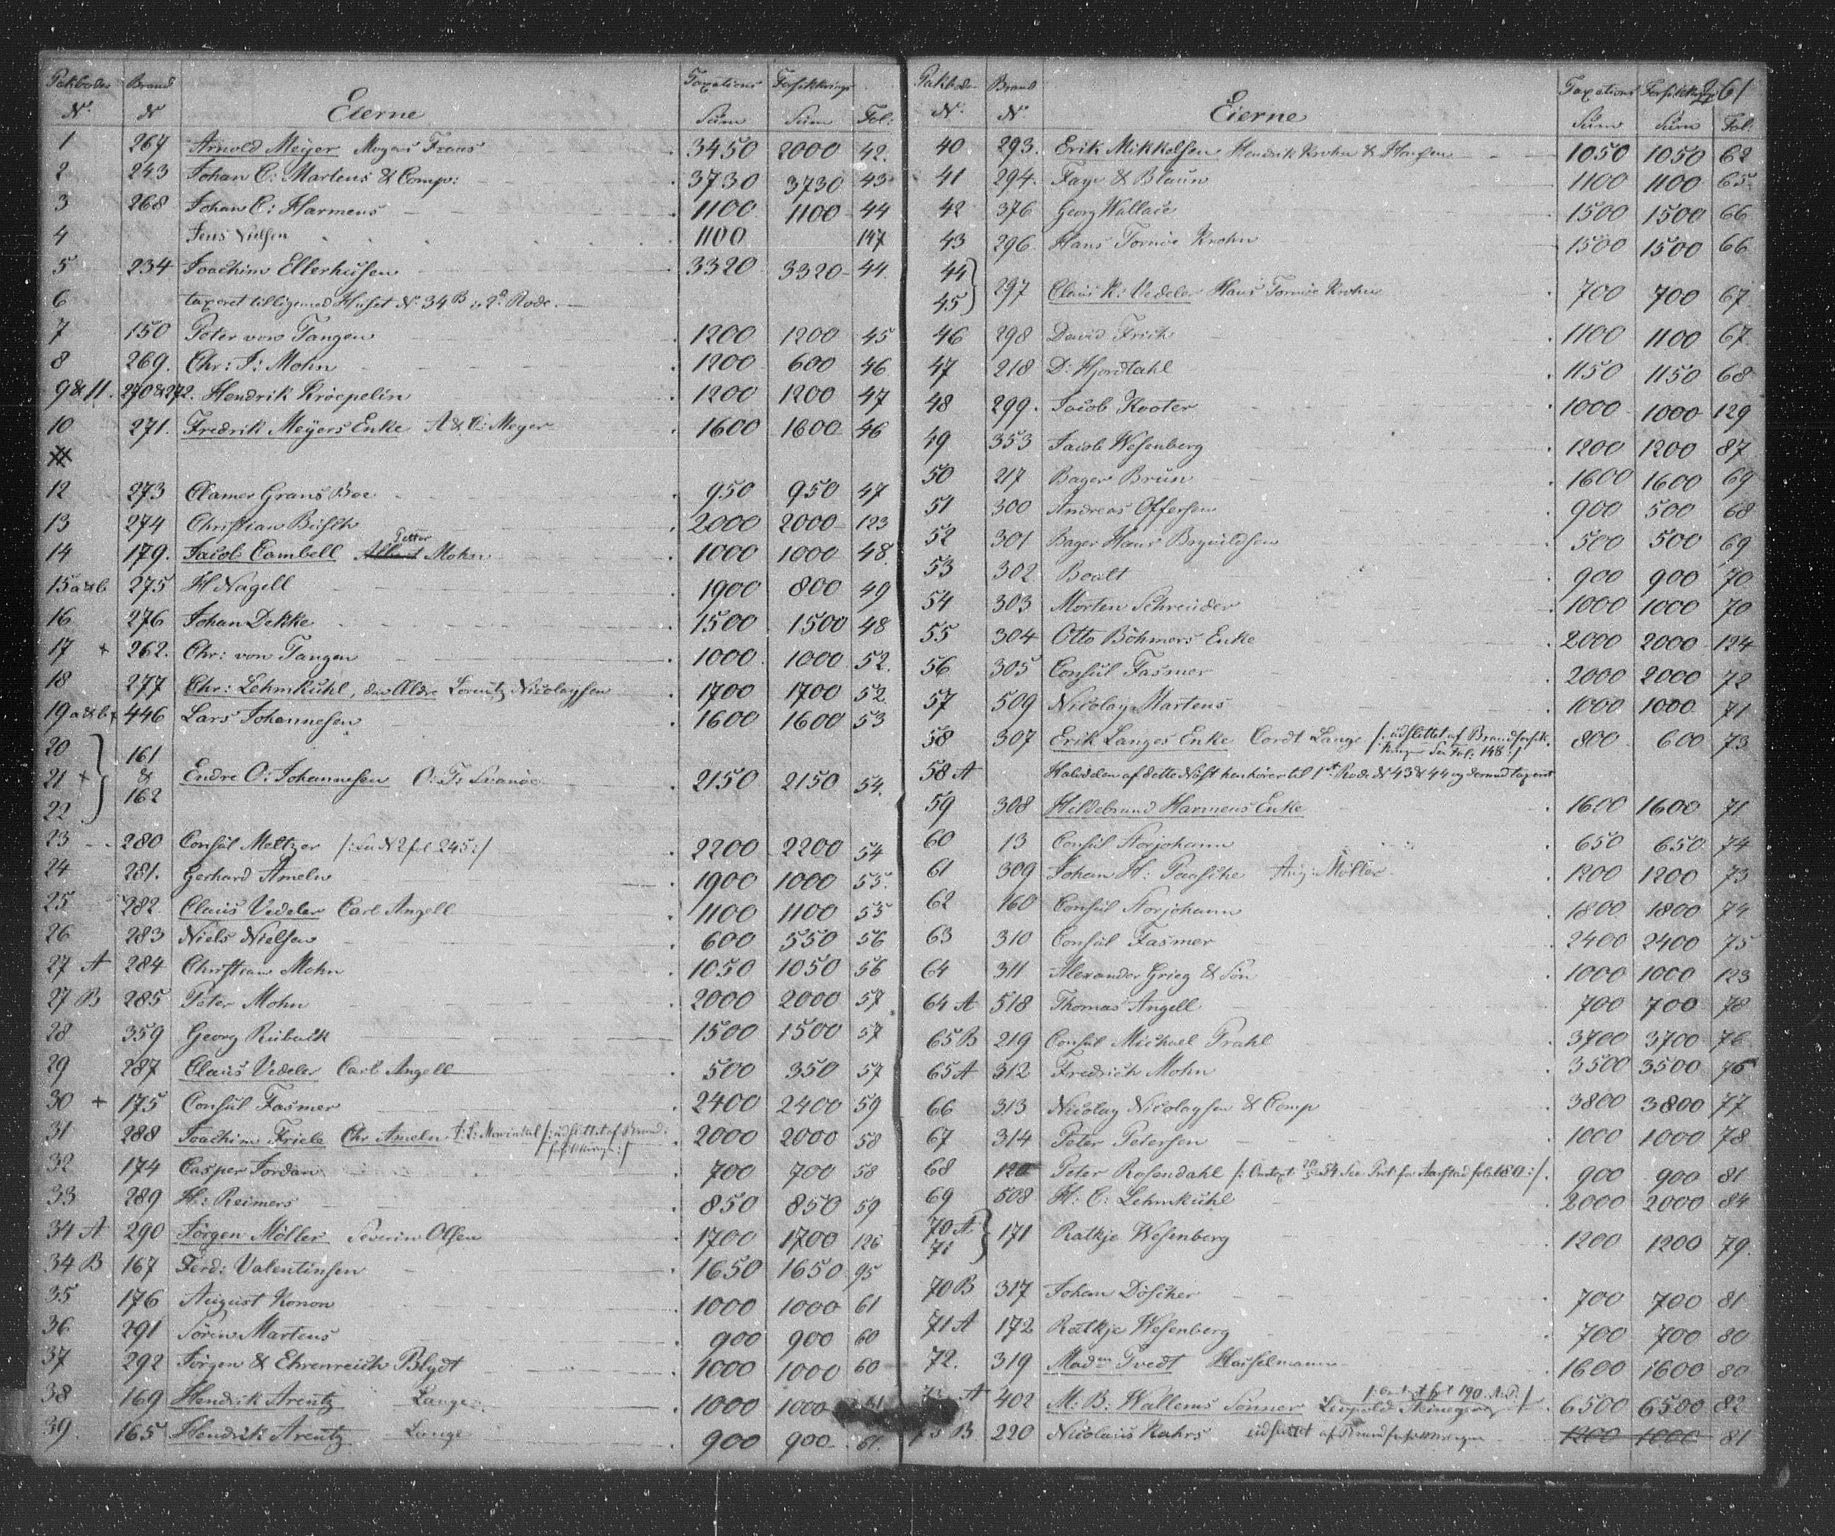 Pakboder Brand Eierne Taxations Forsikkrings Fol:
No. N Sum Sum
1 267 Arnold Meyer Moyers Frans 3450 2000 42.
2 243 Johan C: Martens & Comp: 3730 3730 43
3 268 Johan C: Harmens 1100 1100 44
4 Jens Nielsen 1100 147
5 234 Joachim Ellerhusen 3320 3320 44
6 taxeret tilligemed Huset No 34 B i 2d Rode.
7 150 Peter von Tangen 1200 1200 45
8 269. Chr: J: Mohn 1200 600 46
9 & 11. 270 & 272. Hendrik Kröepelin 1200 1200 47
10 271. Fredrik Meyers Enke A & C: Meyer 1600 1600 46
11
12 273 Clamer Grans Boe 950 950 47
13 274 Christian Busch 2000 2000 123
Petter
14 179. Jacob Cambell Albert Mohn 1000 1000 48
15 a & b 275 H Nagell 1900 800 49
16 276 Johan Dekke 1500 1500 48
17 + 262. Chr: von Tangen 1000 1000 52.
18 277 Chr: Lehmkuhl, den Ældre Lorentz Nicolaysen 1700 1700 52
19 a & b + 446 Lars Johannesen 1600 1600 53
20
161
21 + & Endre O: Johannesen O: T: Svanöe 2150 2150 54.
162
22
23 280 Consul Meltzer /: see N 2 fol 245 :/ 2200 2200 54
24 281. Gerhard Ameln 1900 1000 55.
25 282. Claus Vedeler Carl Angell 1100 1100 55
26 283 Niels Nielsen 600 550 56
27 A 284 Christian Mohn 1050 1050 56
27 B 285 Peter Mohn 2000 2000 57
28 359 Georg Rubach 1500 1500 57
29 287 Claus Vedeler Carl Angell 500 350 57
30 + 175 Consul Fasmer 2400 2400 59
31 288 Joachim Friele Chr Ameln /: udslettet af Brand- 2000 2000 58
forsikkrings :/
32 174 Casper Jordan 700 700 58
33 289 H: Reimers 850 850 59
34 A 290 Jörgen Möller Severin Olsen 1700 1700 126
34 B 167 Ferd: Valentinsen 1650 1650 95
35 176 August Konow 1000 1000 61
36 291 Sören Martens 900 900 60
37 292 Jörgen & Ehrenreich Blydt 1000 1000 60
38 169 Hendrik Arentz Lange 1000 1000 61
39. 165 Hendrik Arentz Lange 900 900 61.
261
Pakboder Brand Eierne Taxations Forsikkrings
No. No. Sum Sum Fol:
40 293. Erik Mikkelsen Hendrik Krohn & Hansen 1050 1050 62
41 294. Faye & Blaun 1100 1100 65
42 376 Georg Wallace 1500 1500 66
43 296. Hans Tornöe Krohn 1500 1500 66
44
297 Claus K: Vedeler Hans Tornöe Krohn 700 700 67
45
46 298 David Frich 1100 1100 67
47 218 D: Hjordtahl 1150 1150 68
48 299. Jacob Kooter 1000 1000 129
49 353 Jacob Wesenberg 1200 1200 87
50 217 Bager Brun 1600 1600 69
51 300 Andreas Offersen 900 500 68
52 301 Bager Hans Boyuldsen 500 500 69
53 302 Boalt 900 900 70
54 303 Morten Schreuder 1000 1000 70
55 304 Otto Böhmers Enke 2000 2000 124
56 305 Consul Fasmer 2000 2000 72
57 509 Nicolay Martens 1000 1000 71
58 307 Erik Langes Enke Cordt Lange /: udslettet af Brandforsik- 800 600 73
kringen See Fol: 148 :/
58 A Halvdelen af dette Nöst henhörer til 1st Rode N 43 & 44 og dermed taxeret
59 308 Hildebrand Harmens Enke 1600 1600 71
60 13 Consul Storjohann 650 650 74
61 309 Johan H: Paasche Aug: Möller 1200 1200 73
62 160 Consul Storjohann 1800 1800 74
63 310 Consul Fasmer 2400 2400 75
64 311 Alexander Grieg & Sön 1000 1000 123
64 A 518 Thomas Angell 700 700 78
65 B 219 Consul Michael Prahl 3700 3700 76
65 A 312 Fredrich Mohn 3500 3500 75
66 313 Nicolay Nicolaysen & Comp 3800 3800 77
67 314 Peter Petersen 1000 1000 78
68 Peter Rosendahl 900 900 81
69 508 H: C: Lehmkuhl 2000 2000 84
70 A
171 Ratkje Wesenberg 1200 1200 79.
71
70 B 317 Johan Döscher 700 700 81
71 A 172 Ratkje Wesenberg 700 700 80
72. 319 Madm Tvedt Haiselmann 1600 1600 80
73 A 402 M: B: Wallems Sönner Leopold 6500 6500 82
73 B 220 Nicolaus Kahrs udslettet af Brandforsikkringen 1200 1000 81